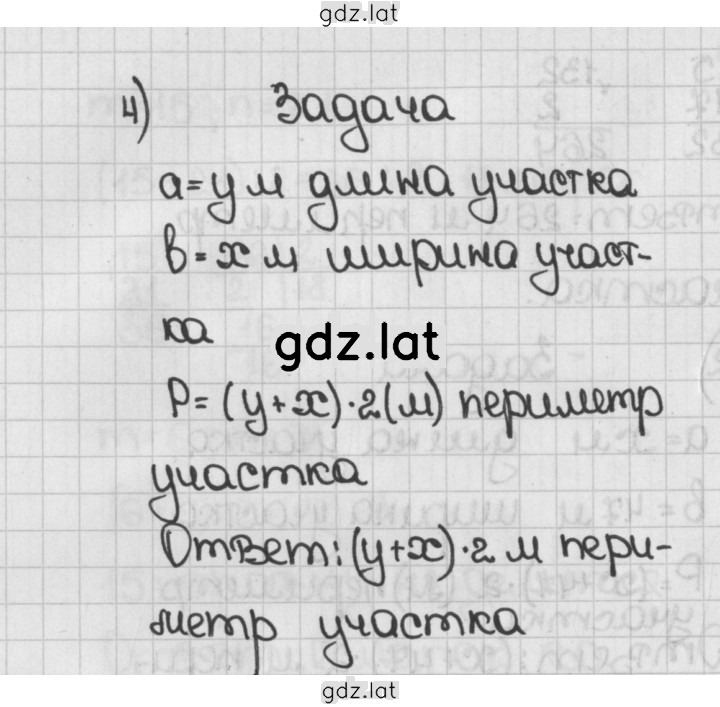 gdz.lat
4) Задача
a = y м длина участка
в = x м ширина участ-
ка
gdz.lat
P = (y + x) · 2 (м) периметр
участка
Ответ: (y + x) · 2 м пери-
метр участка
gdz.lat